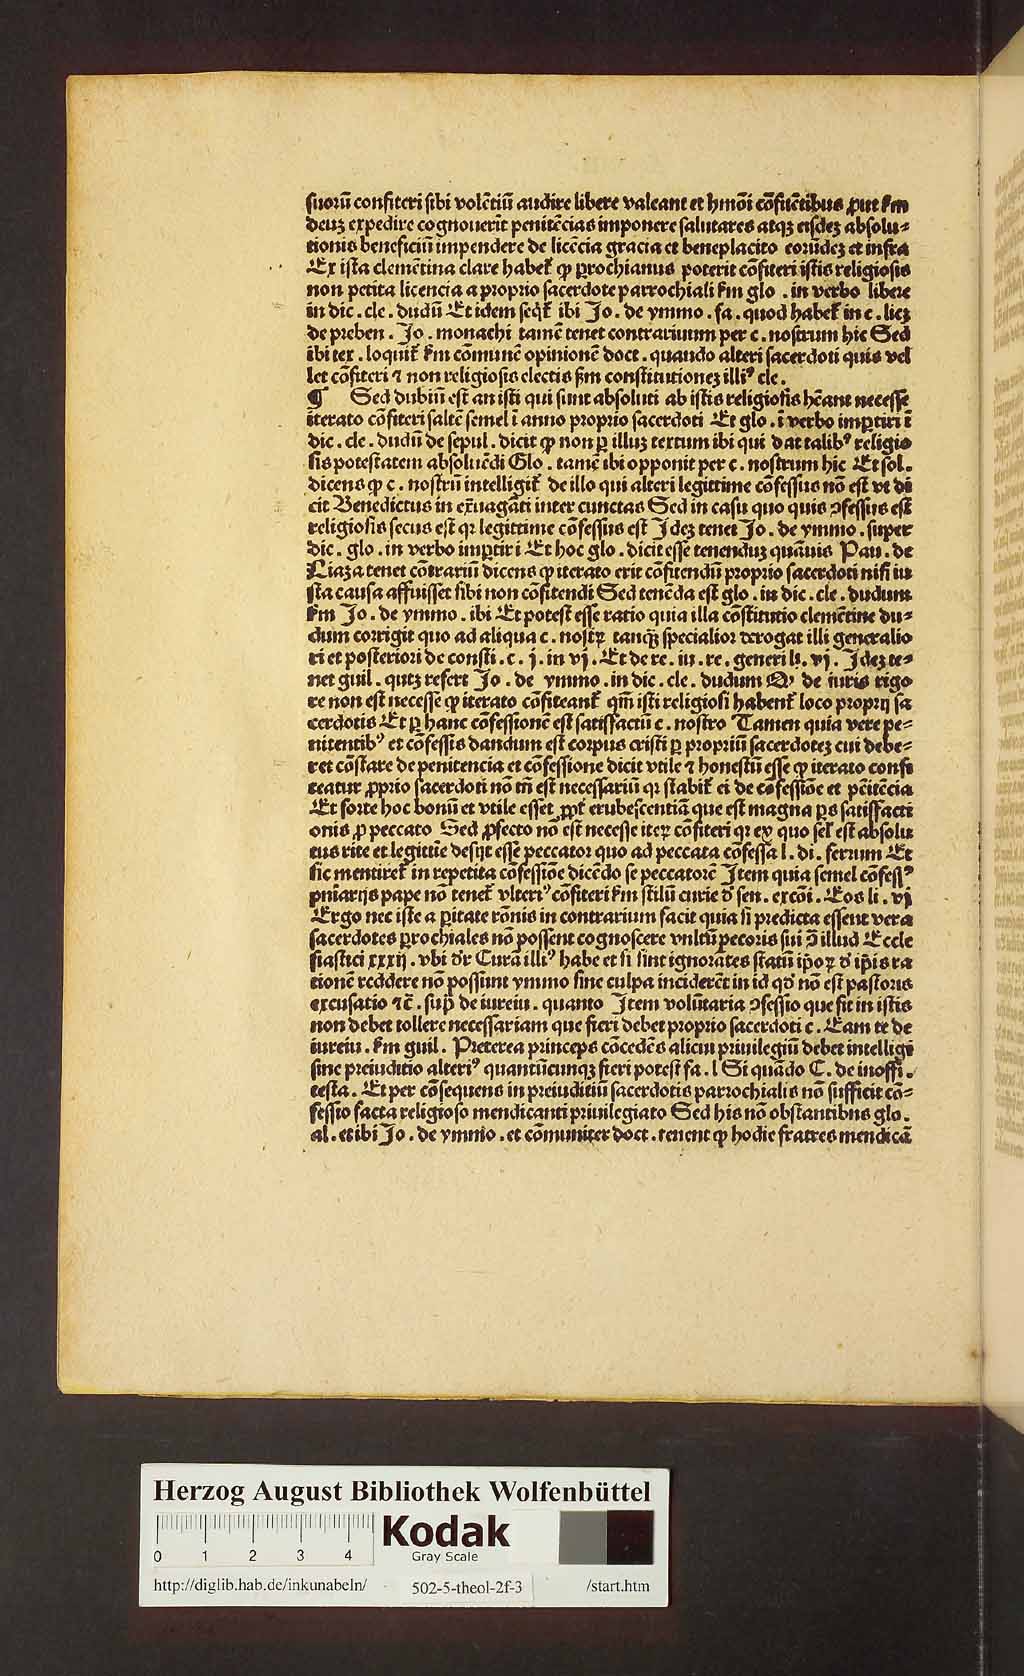 suorū confiteri sibi volētiū audire libere valeant et hmōi cōfitētibus ꝓut km
deuꝫ expedire cognouerīt penitēcias imponere salutares atqꝫ eisdeꝫ absolu⸗
tionis beneficiū impendere de licēcia gracia et beneplacito eorūdeꝫ et infra
Ex ista clemētina clare habet̄ ꝙ ꝑrochianus poterit cōfiteri istis religiosis
non petita licencia a proprio sacerdote parrochiali km glo . in verbo libere
in dic . cle . dudū Et idem seqt̄ ibi Jo . de ymmo . fa . quod habet̄ in c . lieꝫ
de preben . Jo . monachi tamē tenet contrariuum per c . nostrum hic Sed
ibi tex . loquit̄ km cōmunē opinionē doct . quando alteri sacerdoti quis vel
let cōfiteri ⁊ non religiosis electis ẞm constitutioneꝫ illiꝰ cle .
¶ Sed dubiū est an isti qui sunt absoluti ab istis religiosis hēant necesse
iterato cōfiteri saltē semel ī anno proprio sacerdoti Et glo . ī verbo imꝑtiri ī
dic . cle . dudū de sepul . dicit ꝙ non ꝑ illuꝫ textum ibi qui dat talibꝰ religio
sis potestatem absoluēdi Glo . tamē ibi opponit per c . nostrum hic Et sol .
dicens ꝙ c . nostrū intelligit̄ de illo qui alteri legittime cōfessus nō est vt di
cit Benedictus in ex̄uagāti inter cunctas Sed in casu quo quis ꝯfessus est
religiosis secus est qꝛ legittime cōfessus est Jdeꝫ tenet Jo . de ymmo . super
dic . glo . in verbo imꝑtiri Et hoc glo . dicit esse tenenduꝫ quāuis Pau . de
Liaza tenet cōtrariū dicens ꝙ iterato erit cōfitendū proprio sacerdoti nisi iu
sta causa affuisset sibi non cōfitendi Sed tenēda est glo . in dic . cle . dudum
km Jo . de ymmo . ibi Et potest esse ratio quia illa cōstitutio clemētine du⸗
dum corrigit quo ad aliqua c . nostꝝ tanqꝫ specialior derogat illi generalio
ri et posteriori de consti . c . j . in vj . Et de re . iu . re . generi li . vj . Jdeꝫ te⸗
net guil . queꝫ refert Jo . de ymmo . in dic . cle . dudum Qꝫ de iuris rigo
re non est necesse ꝙ iterato cōfiteant̄ qm̄ isti religiosi habent̄ loco proprij sa
cerdotis Et ꝑ hanc cōfessionē est satisfactū c . nostro Tamen quia vere pe⸗
nitentibꝰ et cōfessis dandum est corpus cristi ꝑ propriū sacerdoteꝫ cui debe⸗
ret cōstare de penitencia et cōfessione dicit vtile ⁊ honestū esse ꝙ iterato confi
teatur ꝓprio sacerdoti nō tm̄ est necessariū qꝛ stabit̄ ei de cōfessiōe et pēitēcia
Et forte hoc bonū et vtile esset ꝓpt̄ erubescentiā que est magna ꝑs satisfacti
onis ꝓ peccato Sed ꝓfecto nō est necesse iteꝝ cōfiteri qꝛ ex quo sel̄ est absolu
tus rite et legittīe desijt esse peccator quo ad peccata cōfessa l . di . ferrum Et
sic mentiret̄ in repetita cōfessiōe dicēdo se peccatorē Item quia semel cōfessꝰ
pniarijs pape nō tenet̄ vlteriꝰ cōfiteri km stilū curie d̄ sen . excōi . Eos li . vj
Ergo nec iste a ꝑitate rōnis in contrarium facit quia si predicta essent vera
sacerdotes ꝑrochiales nō possent cognoscere vultū pecoris sui ꝯ̄ illud Eccle
siastici xxxij . vbi dr̄ Curā illiꝰ habe et si sint ignorātes statū ip̄oꝝ d̄ ip̄is ra
tionē reddere nō possunt ymmo sine culpa inciderēt in id qd̄ nō est pastoris
excusatio ⁊c̄ . sup̄ de iureiu . quanto Item volūtaria ꝯfessio que fit in istis
non debet tollere necessariam que fieri debet proprio sacerdoti c . Eam te de
iureiu . km guil . Preterea princeps cōcedēs alicui priuilegiū debet intelligi
sine preiuditio alteriꝰ quantūcunqꝫ fieri potest fa . l Si quādo C . de inoffi .
testa . Et per cōsequens in preiuditiū sacerdotis parrochialis nō sufficit cō⸗
fessio facta religioso mendicanti priuilegiato Sed his nō obstantibus glo .
al . et ibi Jo . de ymmo . et cōmuniter doct . tenent ꝙ hodie fratres mendicā
Herzog August Bibliothek Wolfenbüttel
0 1 2 3 4
Kodak
Gray Scale
http://diglib.hab.de/inkunabeln/ 502-5-theol-2f-3 /start.htm